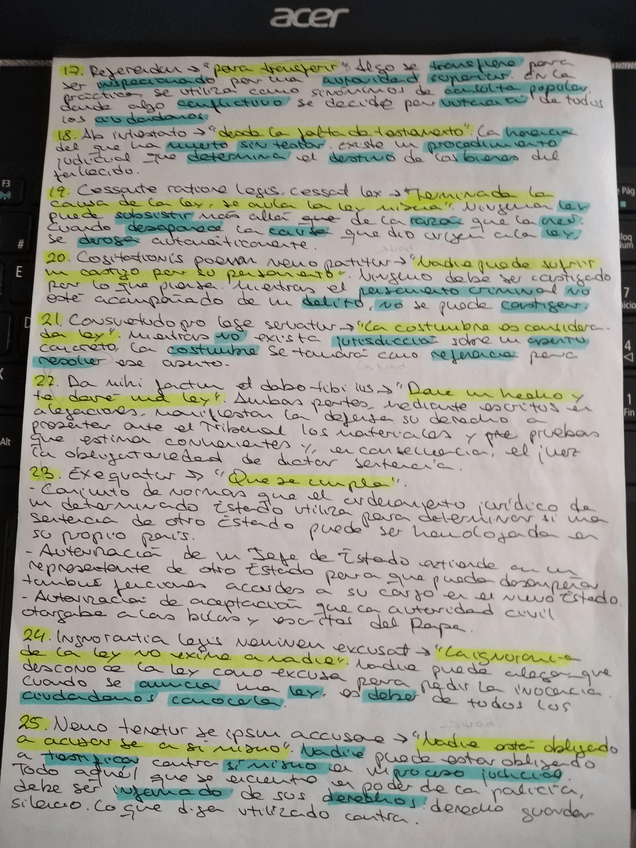 acer
17. Referendum → "para transferir". Algo se transfiere para
ser inspeccionado por una autoridad superior. En la
práctica se utiliza como sinónimos de consulta popular
donde algo conflictivo se decide por votación de todos
los ciudadanos.
18. Ab intestato → "desde la falta de testamento". La herencia
del que ha muerto sin testar. Existe un procedimiento
judicial que determina el destino de los bienes del
fallecido.
19. Cessante ratione legis, cessat lex → "Terminada la
causa de la ley, se anula la ley misma". Ninguna ley
puede subsistir más allá que de la razón que la creó.
Cuando desaparece la causa que dio origen a la ley,
se deroga automáticamente.
20. Cogitationis poenam nemo patitur → "Nadie puede sufrir
un castigo por su pensamiento". Ninguno debe ser castigado
por lo que piense. Mientras el pensamiento criminal no
esté acompañado de un delito, no se puede castigar.
21. Consuetudo pro lege servatur → "La costumbre es considera-
da ley". Mientras no exista jurisdicción sobre un asunto
concreto la costumbre se tomará como referencia para
resolver ese asunto.
22. Da mihi factum et dabo tibi ius → "Dame un hecho y
te daré una ley". Ambas partes, mediante escritos en
alegaciones, manifiestan la defensa su derecho a
presentar ante el Tribunal los materiales y pruebas
que estima convenientes y, en consecuencia, el juez
la obligatoriedad de dictar sentencia.
23. Exequatur → "Que se cumpla".
- Conjunto de normas que el ordenamiento jurídico de
un determinado Estado utiliza para determinar si una
sentencia de otro Estado puede ser homologada en
su propio país.
- Autorización de un Jefe de Estado extiende en un
representante de otro Estado para que pueda desempeñar
funciones acordes a su cargo en el nuevo Estado.
- Autorización de aceptación que la autoridad civil
otorgaba a las bulas y escritos del Papa.
24. Ingnorantia legis neminem excusat → "La ignorancia
de la ley no exime a nadie". Nadie puede alegar que
desconoce la ley como excusa para pedir la inocencia.
Cuando se anuncia una ley, es deber de todos los
ciudadanos conocerla.
25. Nemo tenetur se ipsum accusare → "Nadie está obligado
a acusarse a sí mismo". Nadie puede estar obligado
a testificar contra sí mismo en un proceso judicial.
Todo aquel que se encuentre en poder de la policía,
debe ser informado de sus derechos: derecho guardar
silencio. Lo que diga utilizado contra.